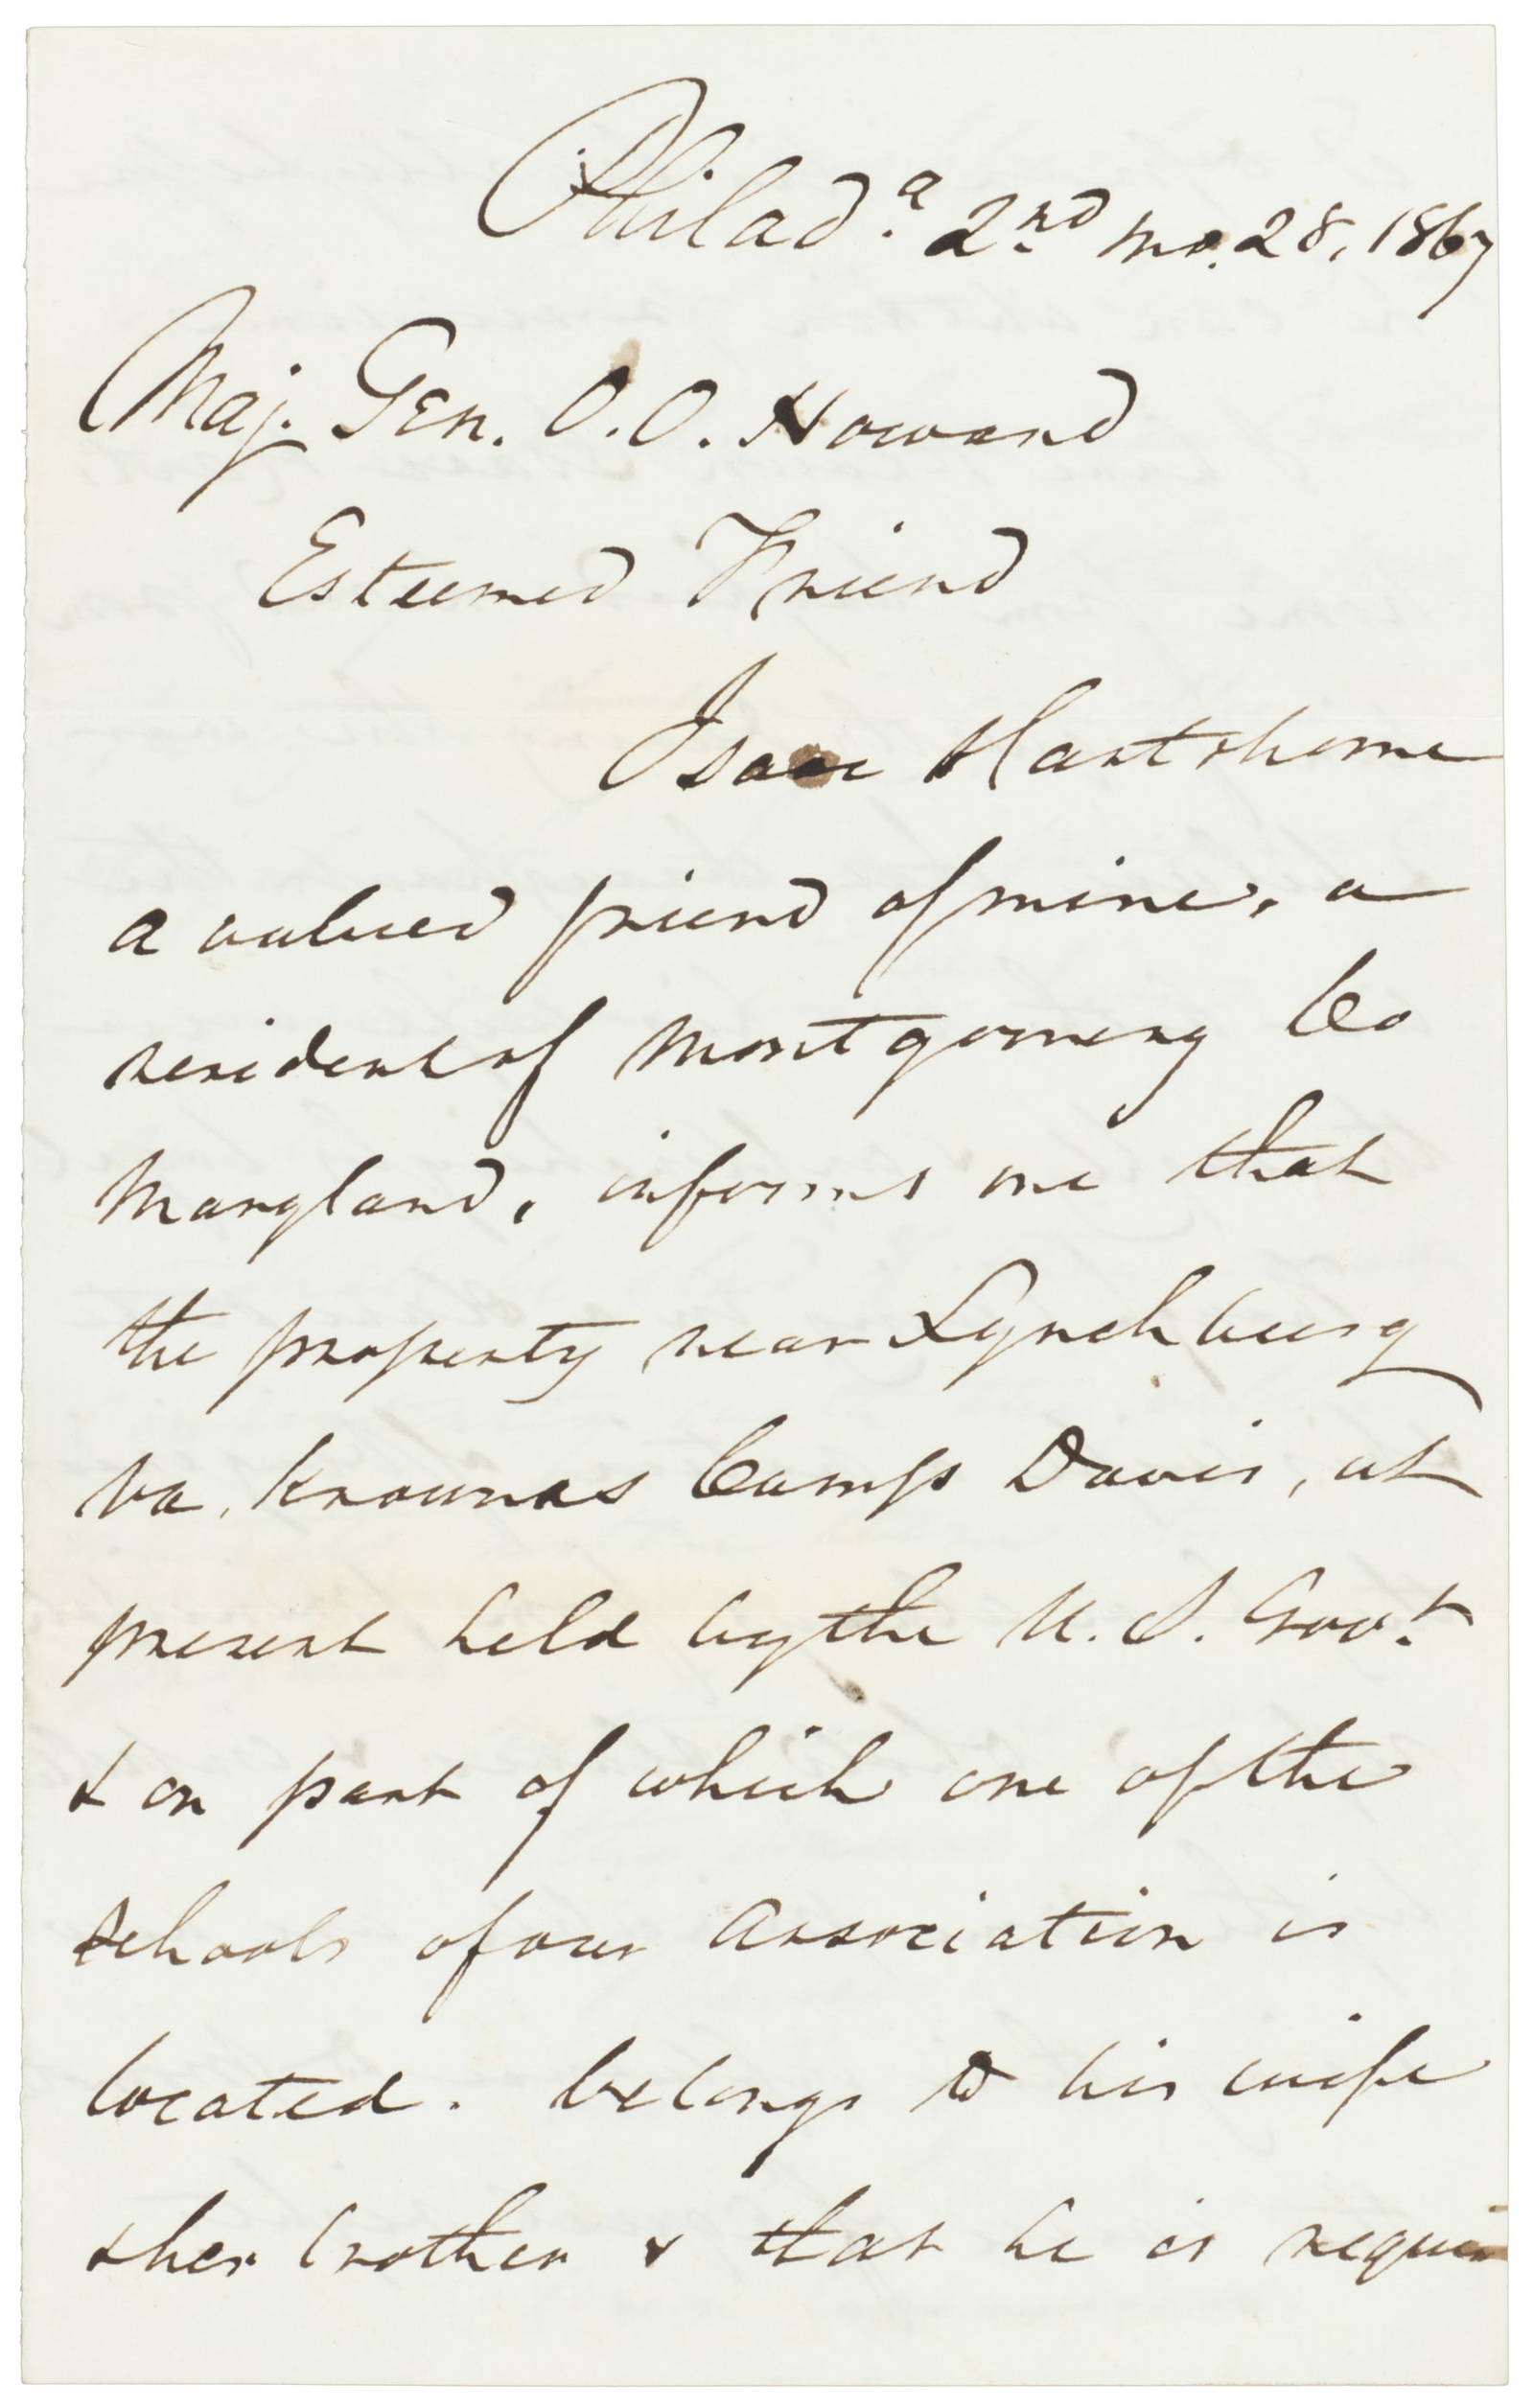 Philad.a 2nd mo. 28, 1867
Maj. Gen. O. O. Howard
Esteemed Friend
Isaac Hartshorne
a valued friend of mine, a
resident of Montgomery Co
Maryland, informs me that
the property near Lynchburg
Va. known as Camp Davis, at
present held by the U. S. Govt.
& on part of which one of the
schools of our Association is
located. belongs to his wife
& her brother & that he is requir